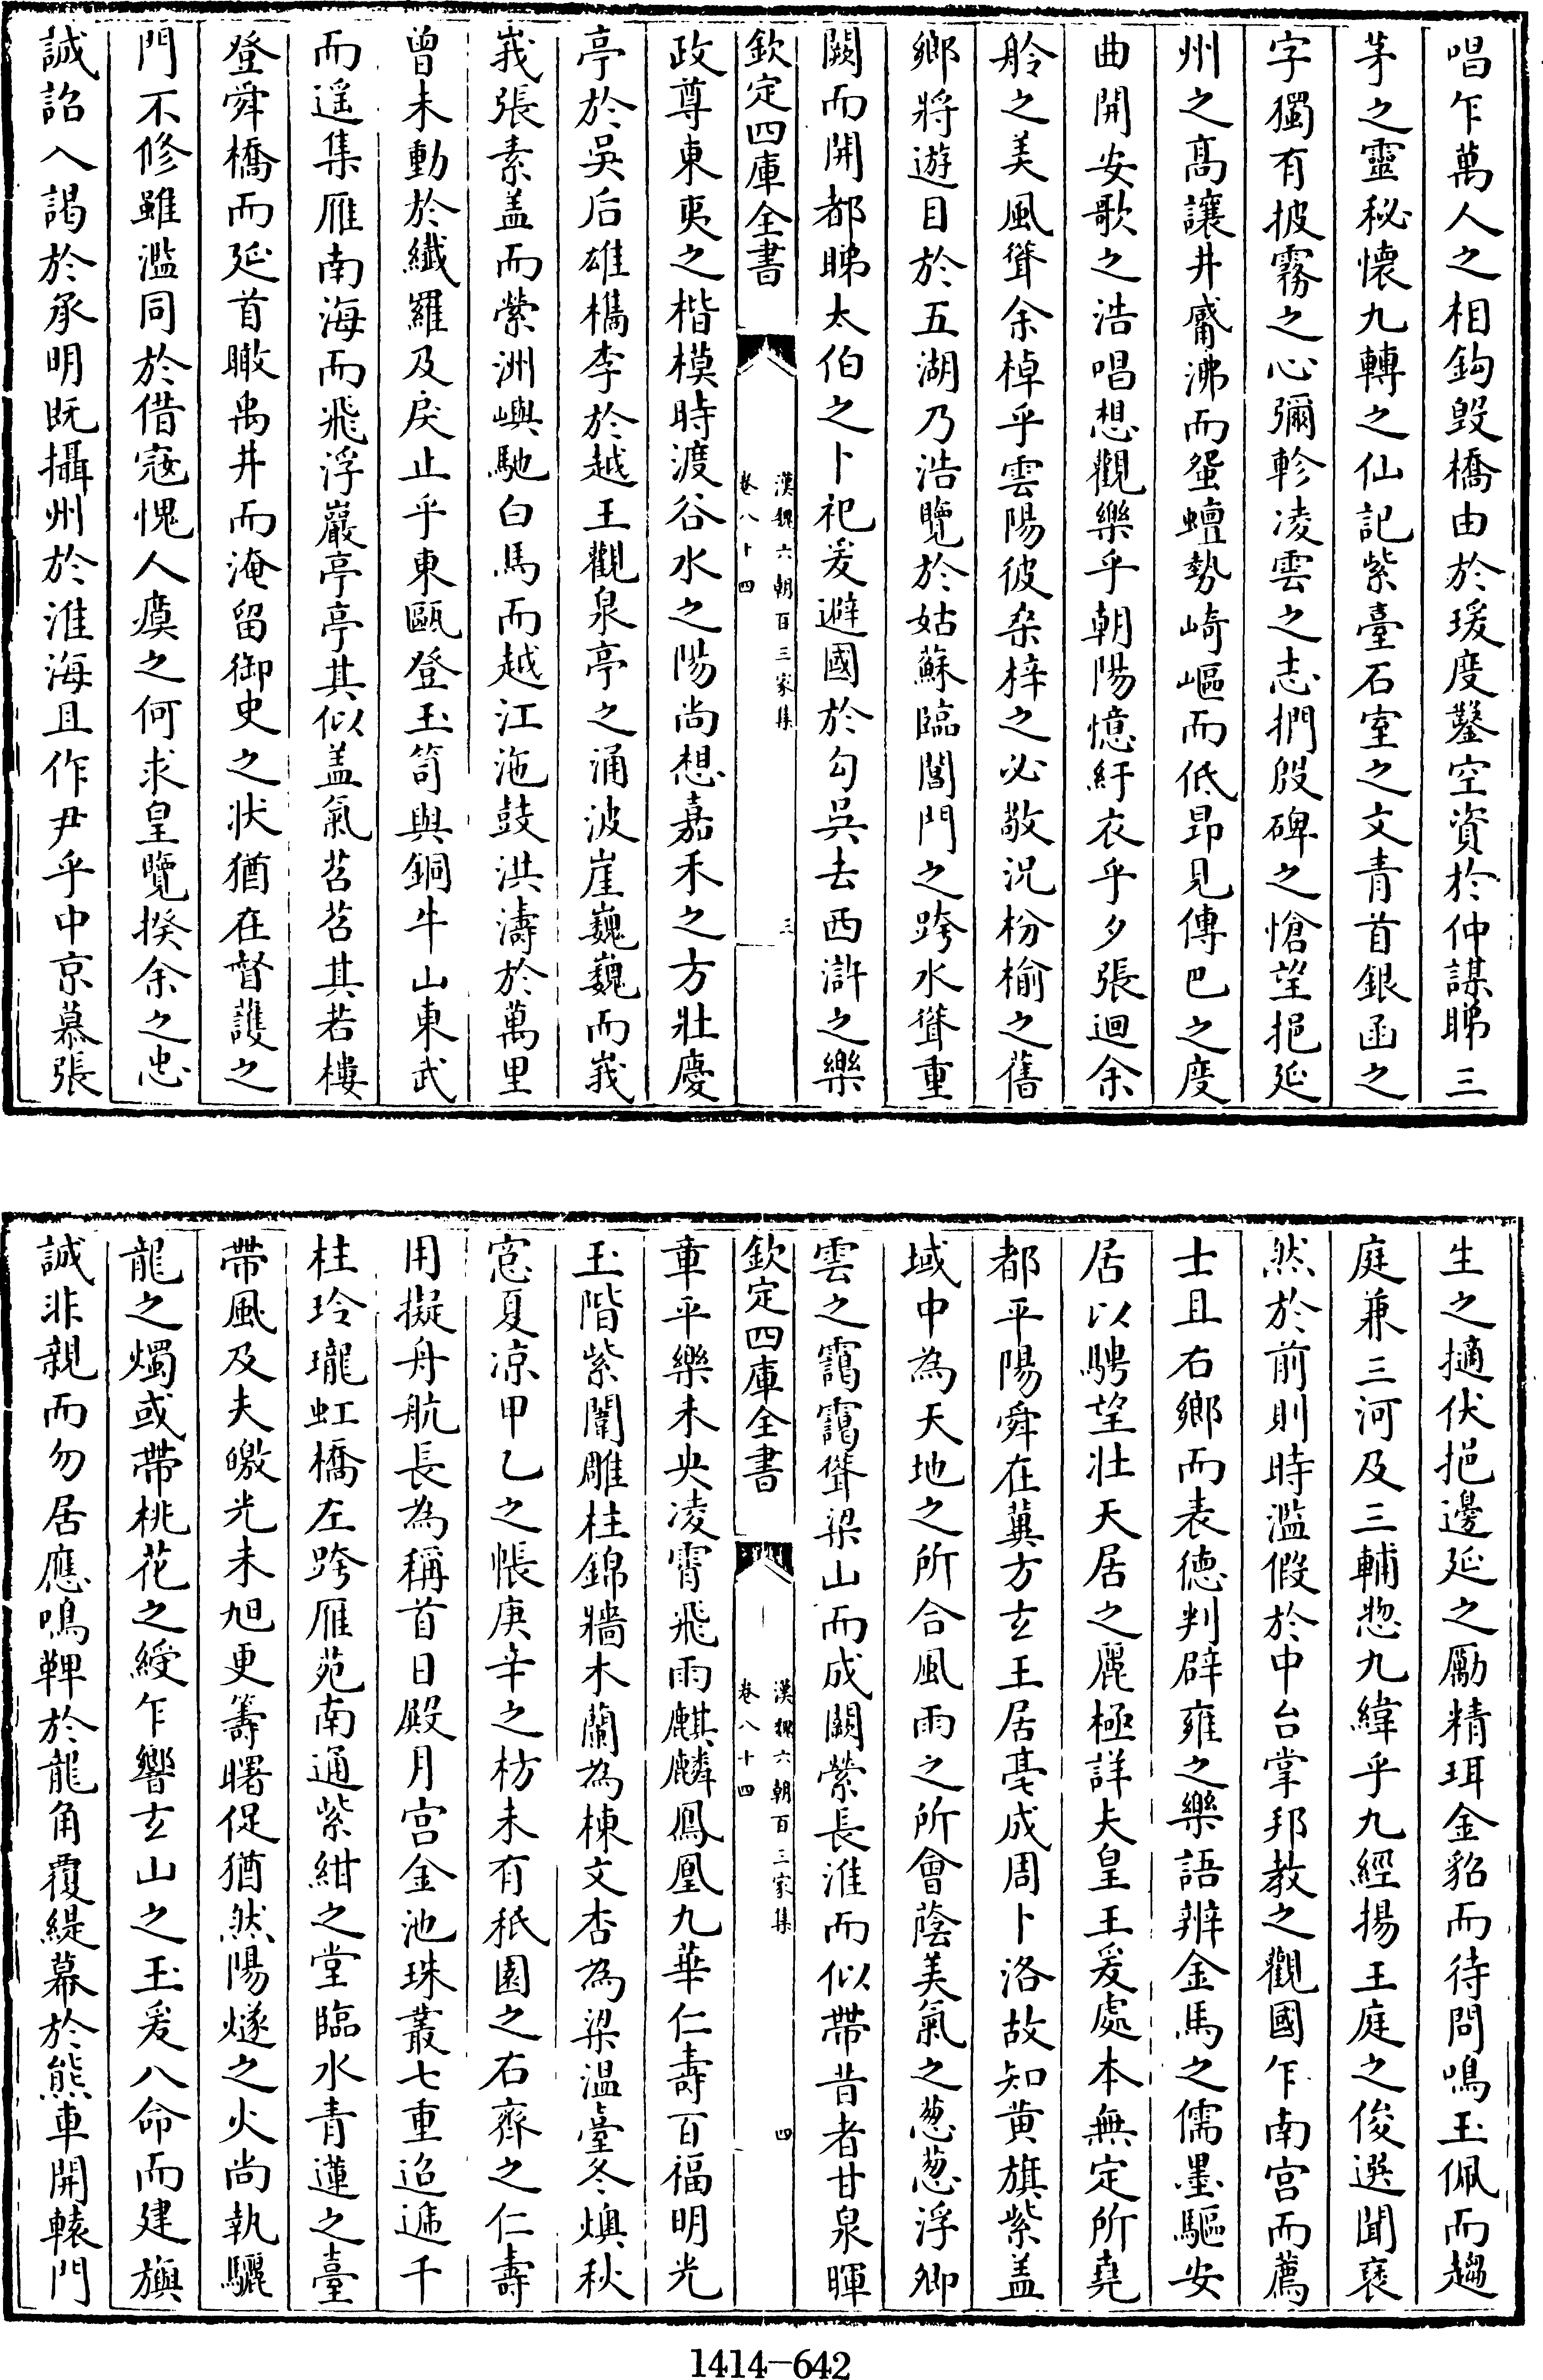 唱乍萬人之相鈎毀橋由於瑗度鑿空資於仲謀睇三
茅之靈秘懷九轉之仙記紫臺石室之文青首銀函之
字獨有披霧之心彌軫凌雲之志捫殷碑之愴望挹延
州之髙讓井觱沸而蛩蟺勢﨑嶇而低昂見傳巴之度
曲開安歌之浩唱想觀樂乎朝陽憶紆衣乎夕張迴余
舲之美風聳余棹乎雲陽彼桑梓之必敬况枌榆之舊
鄉將遊目於五湖乃浩覽於姑蘇臨閶門之跨水聳重
闕而開都睇太伯之卜祀爰避國於勾吳去西滸之樂
欽定四庫全書
漢魏六朝百三家集
卷八十四
三
政尊東夷之楷模時渡谷水之陽尚想嘉禾之方壯慶
亭於吳后雄檇李於越王觀泉亭之涌波崖巍巍而峩
峩張素盖而縈洲嶼馳白馬而越江沲鼓洪濤於萬里
曾未動於纖羅及戾止乎東甌登玉笥與銅牛山東武
而遥集雁南海而飛浮巖亭亭其似盖氣苕苕其若樓
登舜橋而延首瞰禹井而淹留御史之状猶在督䕶之
門不修雖濫同於借宼愧人瘼之何求皇覽揆余之忠
誠詔入謁於承明既攝州於淮海且作尹乎中京慕張
生之擿伏挹邊延之勵精珥金貂而待問鳴玉佩而趨
庭兼三河及三輔惣九緯乎九經揚王庭之俊選聞褒
然於前則時濫假於中台掌邦教之觀國乍南宫而薦
士且右鄉而表徳判辟雍之樂語辨金馬之儒墨驅安
居以騁望壮天居之麗極詳夫皇王爰處本無定所堯
都平陽舜在冀方𤣥王居亳成周卜洛故知黄旗紫盖
域中為天地之所合風雨之所會蔭美氣之葱葱浮卿
雲之靄靄聳梁山而成闕縈長淮而似帶昔者甘泉暉
欽定四庫全書
漢魏六朝百三家集
卷八十四
四
章平樂未央凌霄飛雨麒麟鳳凰九華仁壽百福明光
玉階紫闥雕柱錦牆木蘭為棟文杏為梁温臺冬燠秋
窓夏凉甲乙之帳庚辛之枋未有秖園之右齊之仁壽
用擬舟航長為稱首日殿月宫金池珠叢七重迢遞千
柱玲瓏虹橋左跨雁苑南通紫紺之堂臨水青蓮之臺
帶風及夫曒光未旭更籌曙促猶然陽燧之火尚執驪
龍之燭或帶桃花之綬乍響𤣥山之玉爰八命而建旟
誠非親而勿居應鳴鞞於龍角覆緹幕於熊車開轅門
1414—642